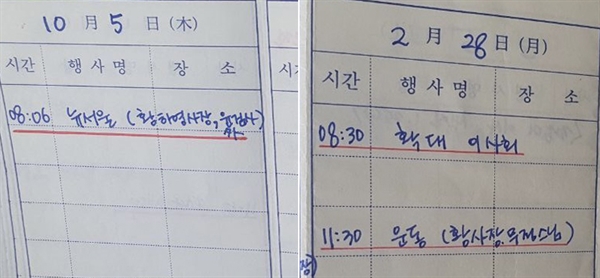 10 월 5 일 (木)
시간 행 사 명 장 소
08:06 뉴서울 (황하영사장,윤검사)
2 월 28 일 (月)
시간 행 사 명 장 소
08:30 확대 이사회
11:30 운동 (황사장.무정스님)